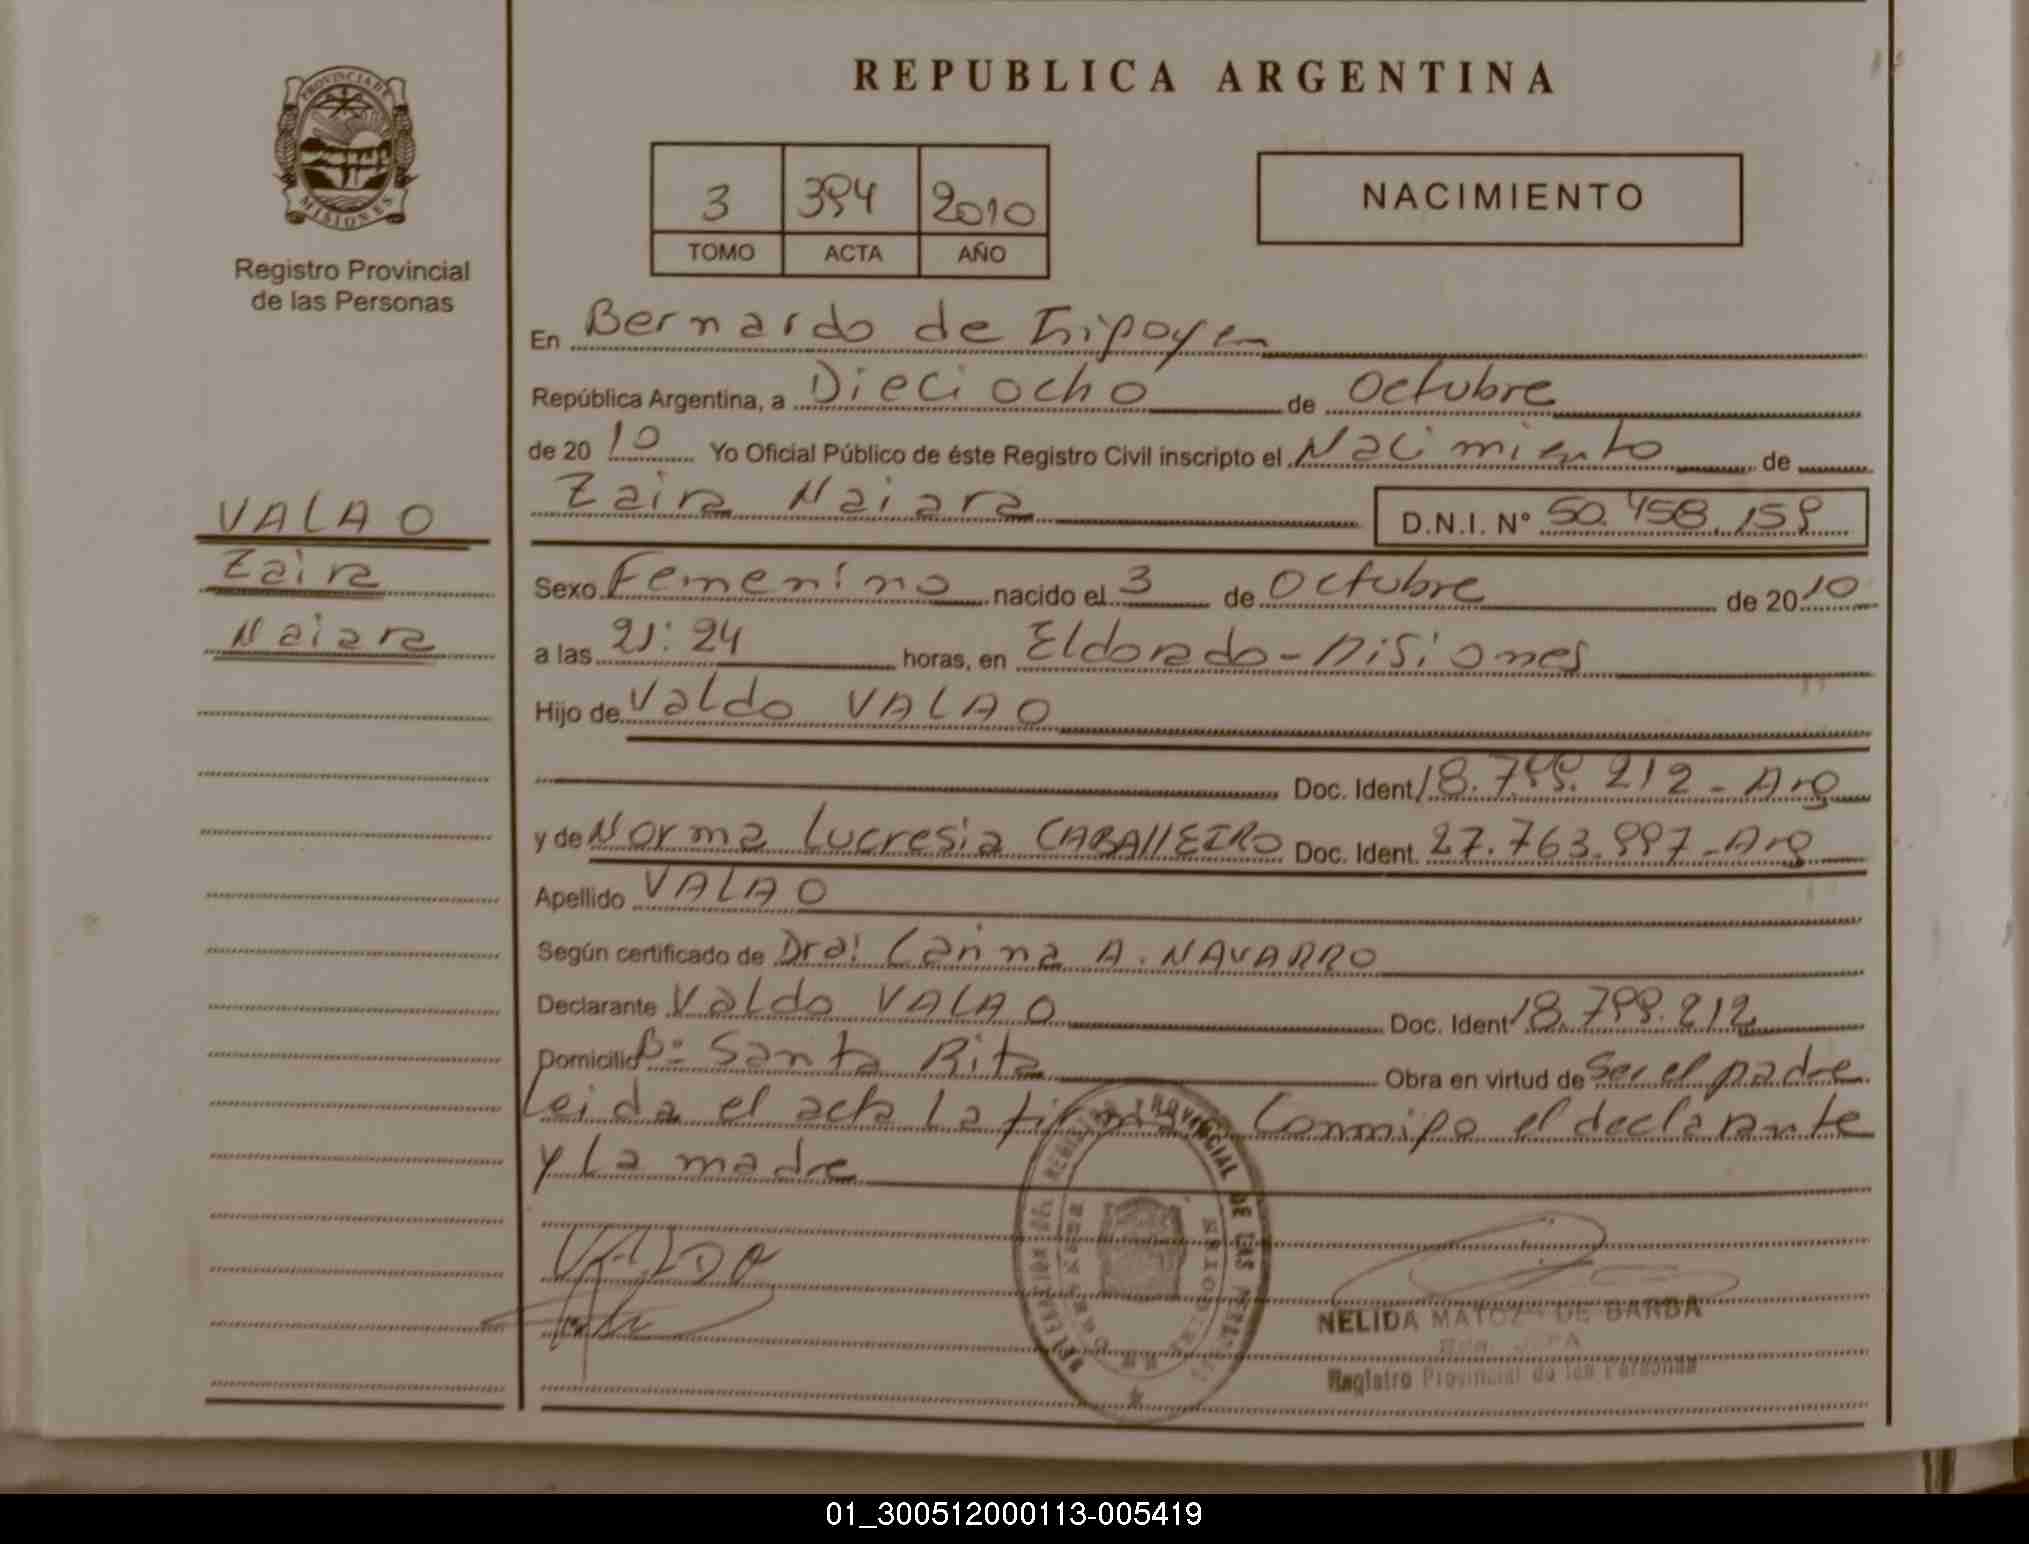 REPUBLICA ARGENTINA
PROVINCIA DE
MISIONES
Registro Provincial
de las Personas
3 394 2010
TOMO ACTA AÑO
NACIMIENTO
En Bernardo de Irigoyen
República Argentina, a Dieciocho de Octubre
de 2010 Yo Oficial Público de éste Registro Civil inscripto el Nacimiento de
Zaira Naiara D.N.I. Nº 50.458.159
VALAO
Zaira
Naiara
Sexo Femenino nacido el 3 de Octubre de 2010
a las 21:24 horas, en Eldorado - Misiones
Hijo de Valdo VALAO
Doc. Ident 18.799.212 - Arg
y de Norma Lucresia CABALLEIRO Doc. Ident. 27.763.997 - Arg
Apellido VALAO
Según certificado de Dra: Carina A. NAVARRO
Declarante Valdo VALAO Doc. Ident 18.799.212
Domicilio Bº Santa Rita Obra en virtud de Ser el padre
Leida el acta La firman Conmigo el declarante
y La madre
VALDO
REGISTRO PROVINCIAL DE LAS
NELIDA MATOZ DE BARBA
Registro Provincial de las Personas
01_300512000113-005419